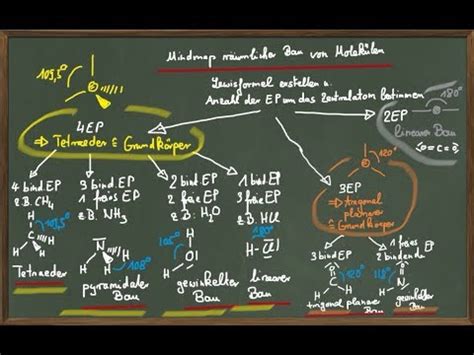 Mindmap räumlicher Bau von Molekülen
Lewisformel erstellen u.
Anzahl der EP um das Zentralatom bestimmen
109,5°
4EP
⇒ Tetraeder ≙ Grundkörper
180°
2EP
linearer Bau
⟨O=C=O⟩
120°
3EP
⇒ trigonal
planarer
≙ Grundkörper
4 bind.EP
z.B. CH4
H
109,5°
H
C
H
H
Tetraeder
3 bind.EP
1 freies EP
z.B. NH3
N
H
H
H
108°
pyramidaler
Bau
2 bind EP
2 freie EP
z.B. H2O
105°
O
H
H
gewinkelter
Bau
1 bind EP
3 freie EP
z.B. HCl
180°
H-Cl
linearer
Bau
3 bind EP
H
C
H
O
120°
trigonal planarer
Bau
1 freies EP
2 bindende
118°
N
O
H
gewinkelter
Bau